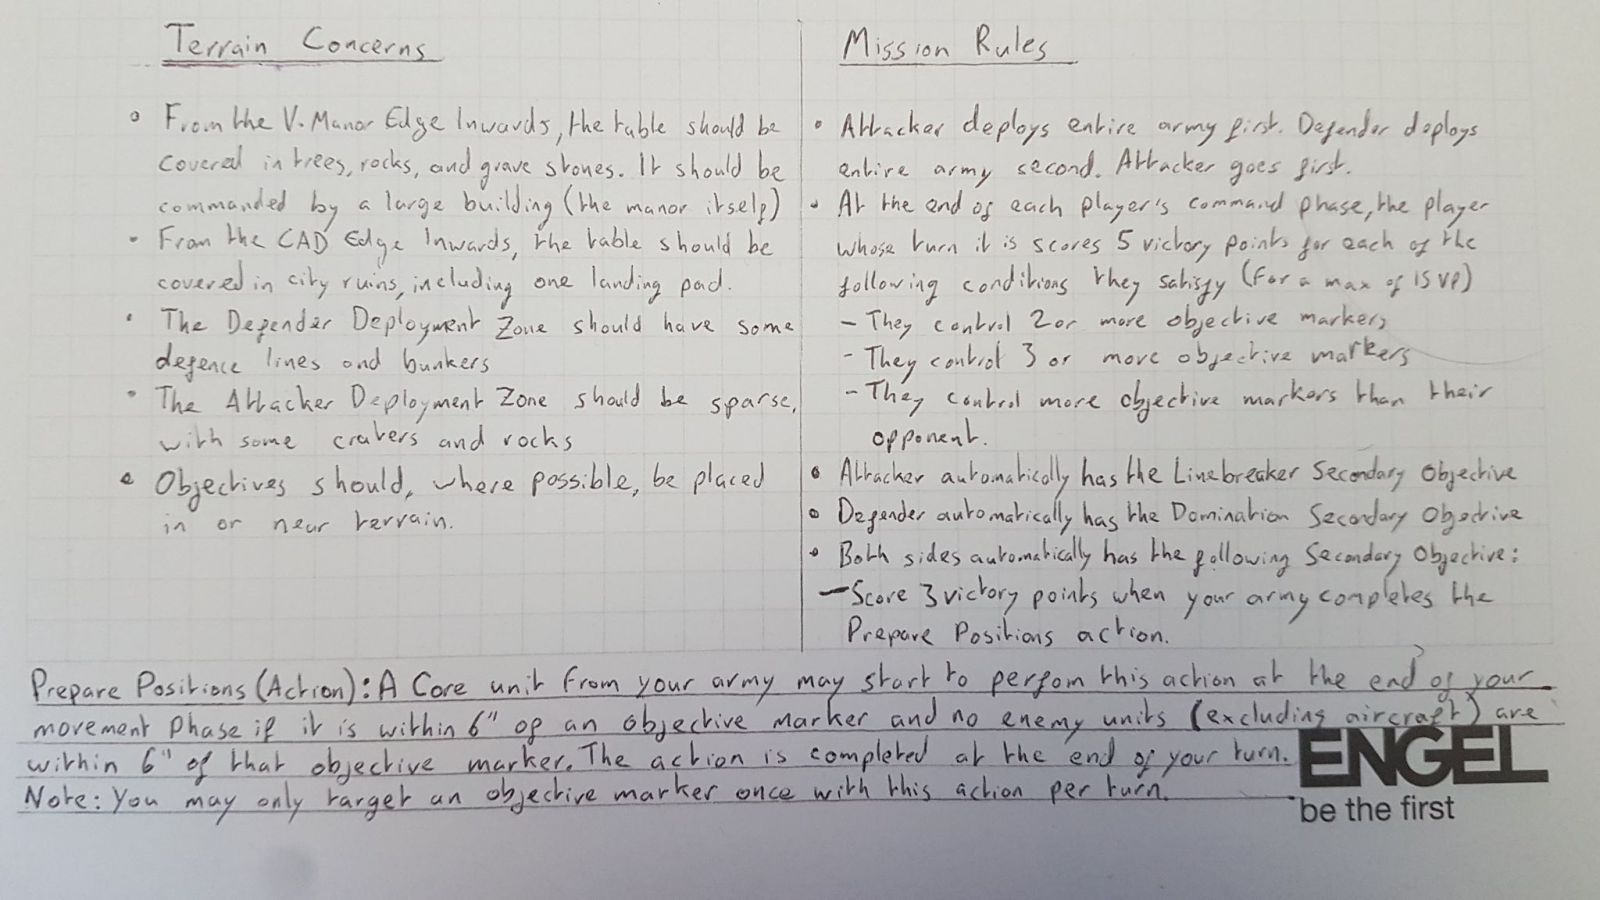 Terrain Concerns
From the V. Manor Edge Inwards, the table should be
covered in trees, rocks, and grave stones. It should be
commanded by a large building (the manor itself)
From the CAD Edge Inwards, the table should be
covered in city ruins, including one landing pad.
The Defender Deployment Zone should have some
defence lines and bunkers
The Attacker Deployment Zone should be sparse,
with some craters and rocks
Objectives should, where possible, be placed
in or near terrain.
Mission Rules
Attacker deploys entire army first. Defender deploys
entire army second. Attacker goes first.
At the end of each player's command phase, the player
whose turn it is scores 5 victory points for each of the
following conditions they satisfy (For a max of 15 VP)
- They control 2 or more objective markers
- They control 3 or more objective markers
- They control more objective markers than their
opponent.
Attacker automatically has the Linebreaker Secondary Objective
Defender automatically has the Domination Secondary Objective
Both sides automatically has the following Secondary Objective:
- Score 3 victory points when your army completes the
Prepare Positions action.
Prepare Positions (Action): A Core unit from your army may start to perfom this action at the end of your
movement phase if it is within 6" of an objective marker and no enemy units (excluding aircraft) are
within 6" of that objective marker. The action is completed at the end of your turn.
Note: You may only target an objective marker once with this action per turn.
ENGEL
be the first